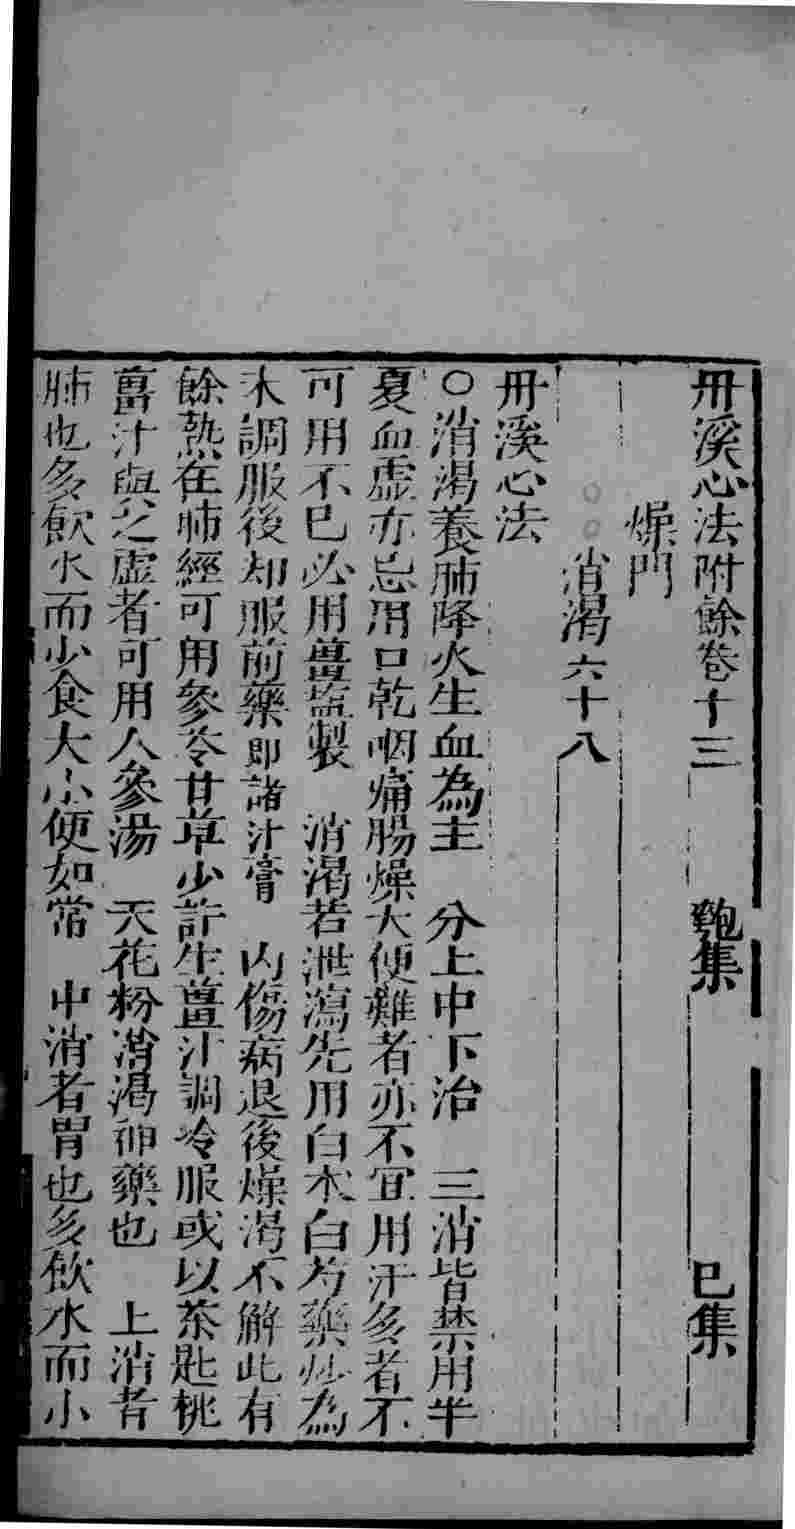 丹溪心法附餘卷十三 匏集 巳集
燥門
消渴六十八
丹溪心法
○消渴養肺降火生血為主 分上中下治 三消皆禁用半
夏血虛亦忌用口乾咽痛腸燥大便難者亦不宜用汗多者不
可用不已必用薑鹽製 消渴若泄瀉先用白朮白芍藥炒為
末調服後却服前藥即諸汁膏 內傷病退後燥渴不解此有
餘熱在肺經可用參苓甘草少許生薑汁調冷服或以茶匙挑
薑汁與之虛者可用人參湯 天花粉消渴神藥也 上消者
肺也多飲水而少食大小便如常 中消者胃也多飲水而小